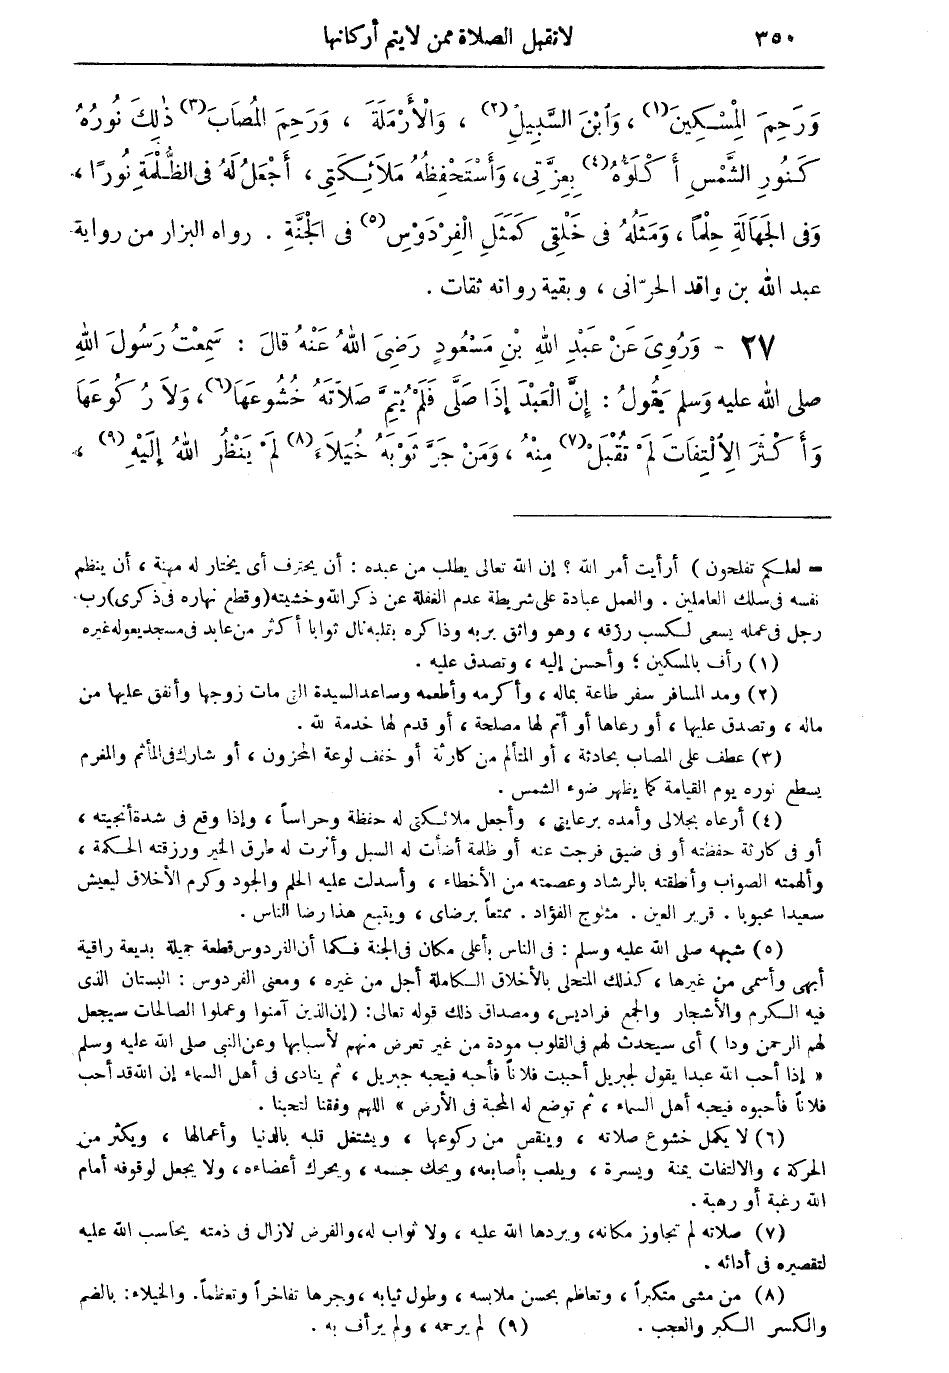 ٣٥٠ لا تقبل الصلاة ممن لا يتم أركانها
وَرَحِمَ المِسْكِينَ(١) ، وَابْنَ السَّبِيلِ(٢) ، وَالْأَرْمَلَةَ ، وَرَحِمَ المُصَابَ(٣) ذٰلِكَ نُورُهُ
كَنُورِ الشَّمْسِ أَكْلَؤُهُ(٤) بِعِزَّتِى، وَأَسْتَحْفِظُهُ مَلَائِكَتِى ، أَجْعَلُ لَهُ فى الظُّلْمَةِ نُورًا ،
وَفى الجَهَالَةِ حِلْماً ، وَمَثَلُهُ فى خَلْقِى كَمَثَلِ الْفِرْدَوْسِ(٥) فى الجَنَّةِ . رواه البزار من رواية
عبد الله بن واقد الحرّانى ، وبقية رواته ثقات .
٢٧ - وَرُوِىَ عَنْ عَبْدِ اللهِ بْنِ مَسْعُودٍ رَضِىَ اللهُ عَنْهُ قالَ : سَمِعْتُ رَسُولَ اللهِ
صلى الله عليه وَسلم يَقُولُ : إِنَّ الْعَبْدَ إِذَا صَلَّى فَلَمْ يُتِمَّ صَلَاتَهُ خُشُوعَهَا(٦)، وَلَا رُكُوعَهَا
وَأَكْثَرَ الِالْتِفَاتَ لَمْ تُقْبَلْ(٧) مِنْهُ ، وَمَنْ جَرَّ ثَوْبَهُ خُيَلَاءَ(٨) لَمْ يَنْظُرِ اللهُ إِلَيْهِ(٩) ،
= لعلكم تفلحون ) أرأيت أمر الله ؟ إن الله تعالى يطلب من عبده : أن يحترف أى يختار له مهنة ، أن ينظم
نفسه فى سلك العاملين . والعمل عبادة على شريطة عدم الغفلة عن ذكر الله وخشيته (وقطع نهاره فى ذكرى) رب
رجل فى عمله يسعى لكسب رزقه ، وهو واثق بربه وذاكره بقلبه نال ثوابا أكثر من عابد فى مسجد يعوله غيره
(١) رأف بالمسكين ؛ وأحسن إليه ، وتصدق عليه .
(٢) ومد المسافر سفر طاعة بماله ، وأكرمه وأطعمه وساعد السيدة التى مات زوجها وأنفق عليها من
ماله ، وتصدق عليها ، أو رعاها أو أتم لها مصلحة ، أو قدم لها خدمة لله .
(٣) عطف على المصاب بحادثة ، أو المتألم من كارثة أو خفف لوعة المحزون ، أو شارك فى المأثم والمغرم
يسطع نوره يوم القيامة كما يظهر ضوء الشمس .
(٤) أرعاه بجلالى وأمده برعايتى ، وأجعل ملائكتى له حفظة وحراساً ، وإذا وقع فى شدة أنجيته ،
أو فى كارثة حفظته أو فى ضيق فرجت عنه أو ظلمة أضأت له السبل وأنرت له طرق الخير ورزقته الحكمة ،
وألهمته الصواب وأنطقته بالرشاد وعصمته من الأخطاء ، وأسدلت عليه الحلم والجود وكرم الأخلاق ليعيش
سعيدا محبوبا . قرير العين . مثلوج الفؤاد . ممتعاً برضاى ، ويتبع هذا رضا الناس .
(٥) شبهه صلى الله عليه وسلم : فى الناس بأعلى مكان فى الجنة فكما أن الفردوس قطعة جميلة بديعة راقية
أبهى وأسمى من غيرها ، كذلك المتحلى بالأخلاق الكاملة أجل من غيره ، ومعنى الفردوس : البستان الذى
فيه الكرم والأشجار والجمع فراديس، ومصداق ذلك قوله تعالى: (إن الذين آمنوا وعملوا الصالحات سيجعل
لهم الرحمن ودا ) أى سيحدث لهم فى القلوب مودة من غير تعرض منهم لأسبابها وعن النبى صلى الله عليه وسلم
« إذا أحب الله عبدا يقول لجبريل أحببت فلاناً فأحبه فيحبه جبريل ، ثم ينادى فى أهل السماء إن الله قد أحب
فلاناً فأحبوه فيحبه أهل السماء ، ثم توضع له المحبة فى الأرض » اللهم وفقنا لتحبنا .
(٦) لا يكمل خشوع صلاته ، وينقص من ركوعها ، ويشتغل قلبه بالدنيا وأعمالها ، ويكثر من
الحركة ، والالتفات يمنة ويسرة ، ويلعب بأصابعه، ويحك جسمه ، ويحرك أعضاءه ، ولا يجعل لوقوفه أمام
الله رغبة أو رهبة .
(٧) صلاته لم تجاوز مكانه، ويردها الله عليه ، ولا ثواب له، والفرض لازال فى ذمته يحاسب الله عليه
لتقصيره فى أدائه .
(٨) من مشى متكبراً ، وتعاظم بحسن ملابسه ، وطول ثيابه ، وجرها تفاخراً وتعظماً. والخيلاء: بالضم
والكسر الكبر والعجب . (٩) لم يرحمه ، ولم يرأف به .